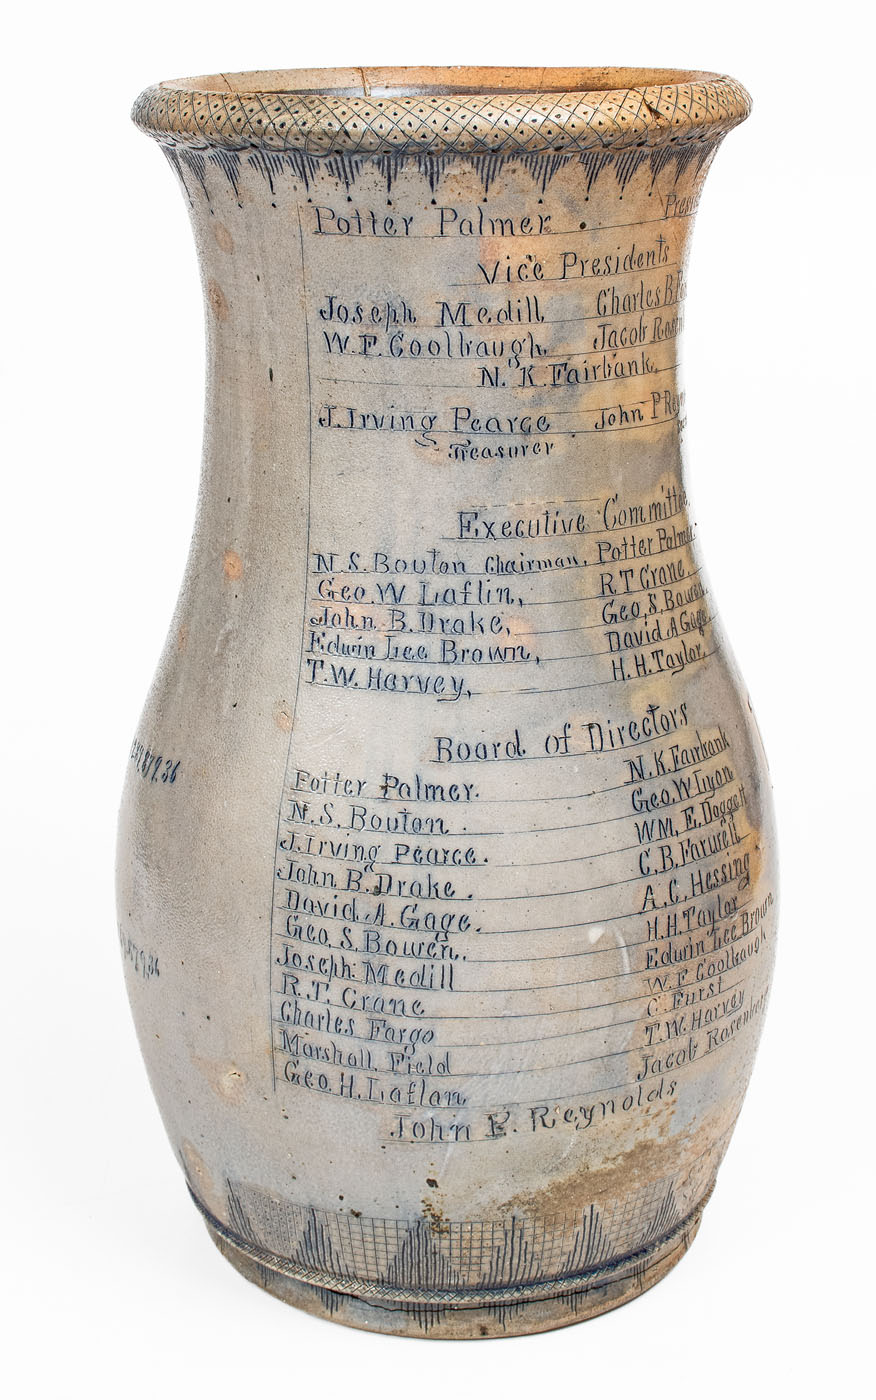 Potter Palmer
Vice Presidents
Joseph Medill Charles B.
W.F. Coolbaugh Jacob
N. K. Fairbank.
J. Irving Pearce John P
Treasurer
Executive Committee
N. S. Bouton Chairman, Potter Palmer
Geo. W Laflin, R.T Crane,
John B. Drake, Geo. S. Bowen,
Edwin Lee Brown, David A Gage,
T. W. Harvey, H. H. Taylor,
Board of Directors
Potter Palmer. N. K. Fairbank
N. S. Bouton. Geo. W Lyon
J. Irving Pearce. WM. E. Doggett
John B. Drake. C. B. Farwell
David A. Gage. A. C. Hessing
Geo. S. Bowen. H. H. Taylor
Joseph Medill Edwin Lee Brown
R. T. Crane W. F Coolbaugh
Charles Fargo C. Furst
Marshall Field T. W. Harvey
Geo. H. Laflan Jacob Rosenberg
John P. Reynolds